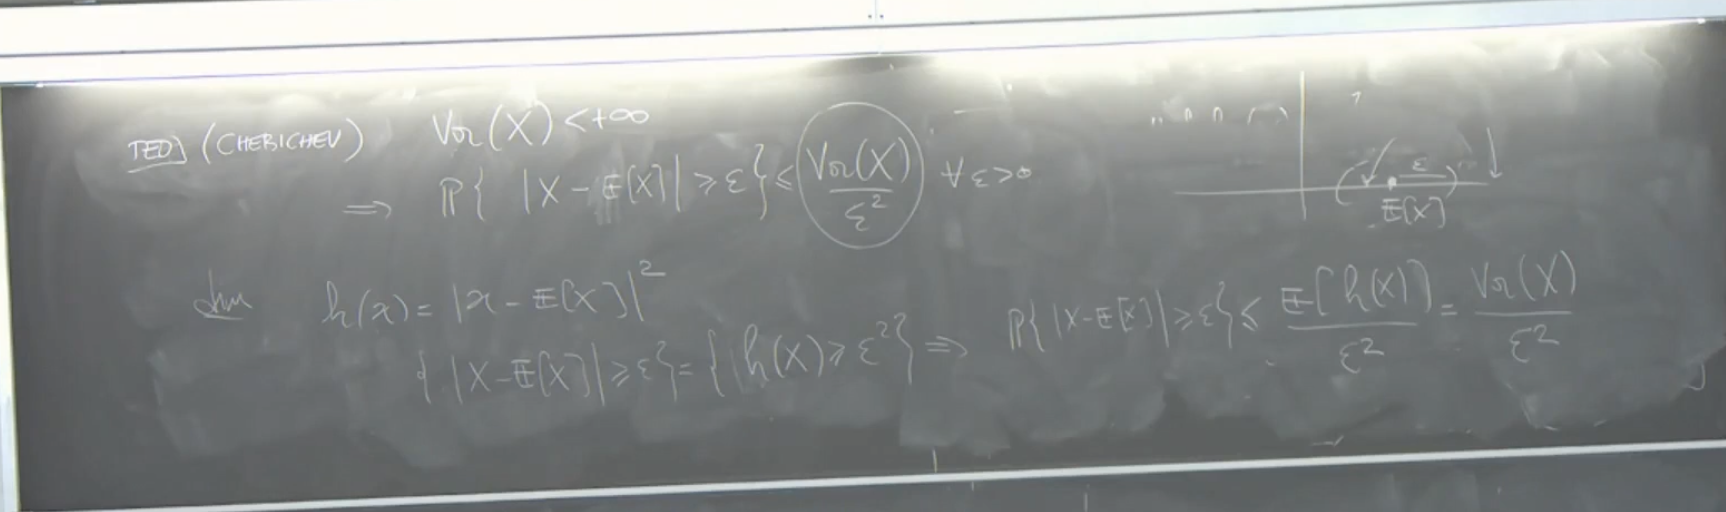 TEO] (CHEBICHEV) Var(X) < +∞
⇒ ℙ{ |X - 𝔼[X]| ⩾ ε} ⩽ Var(X)/ε² ∀ ε > 0
ε
𝔼[X]
dim h(x) = |x - 𝔼[X]|²
{ |X - 𝔼[X]| ⩾ ε} = { h(X) ⩾ ε²} ⇒ ℙ{ |X - 𝔼[X]| ⩾ ε} ⩽ 𝔼[h(X)]/ε² = Var(X)/ε²